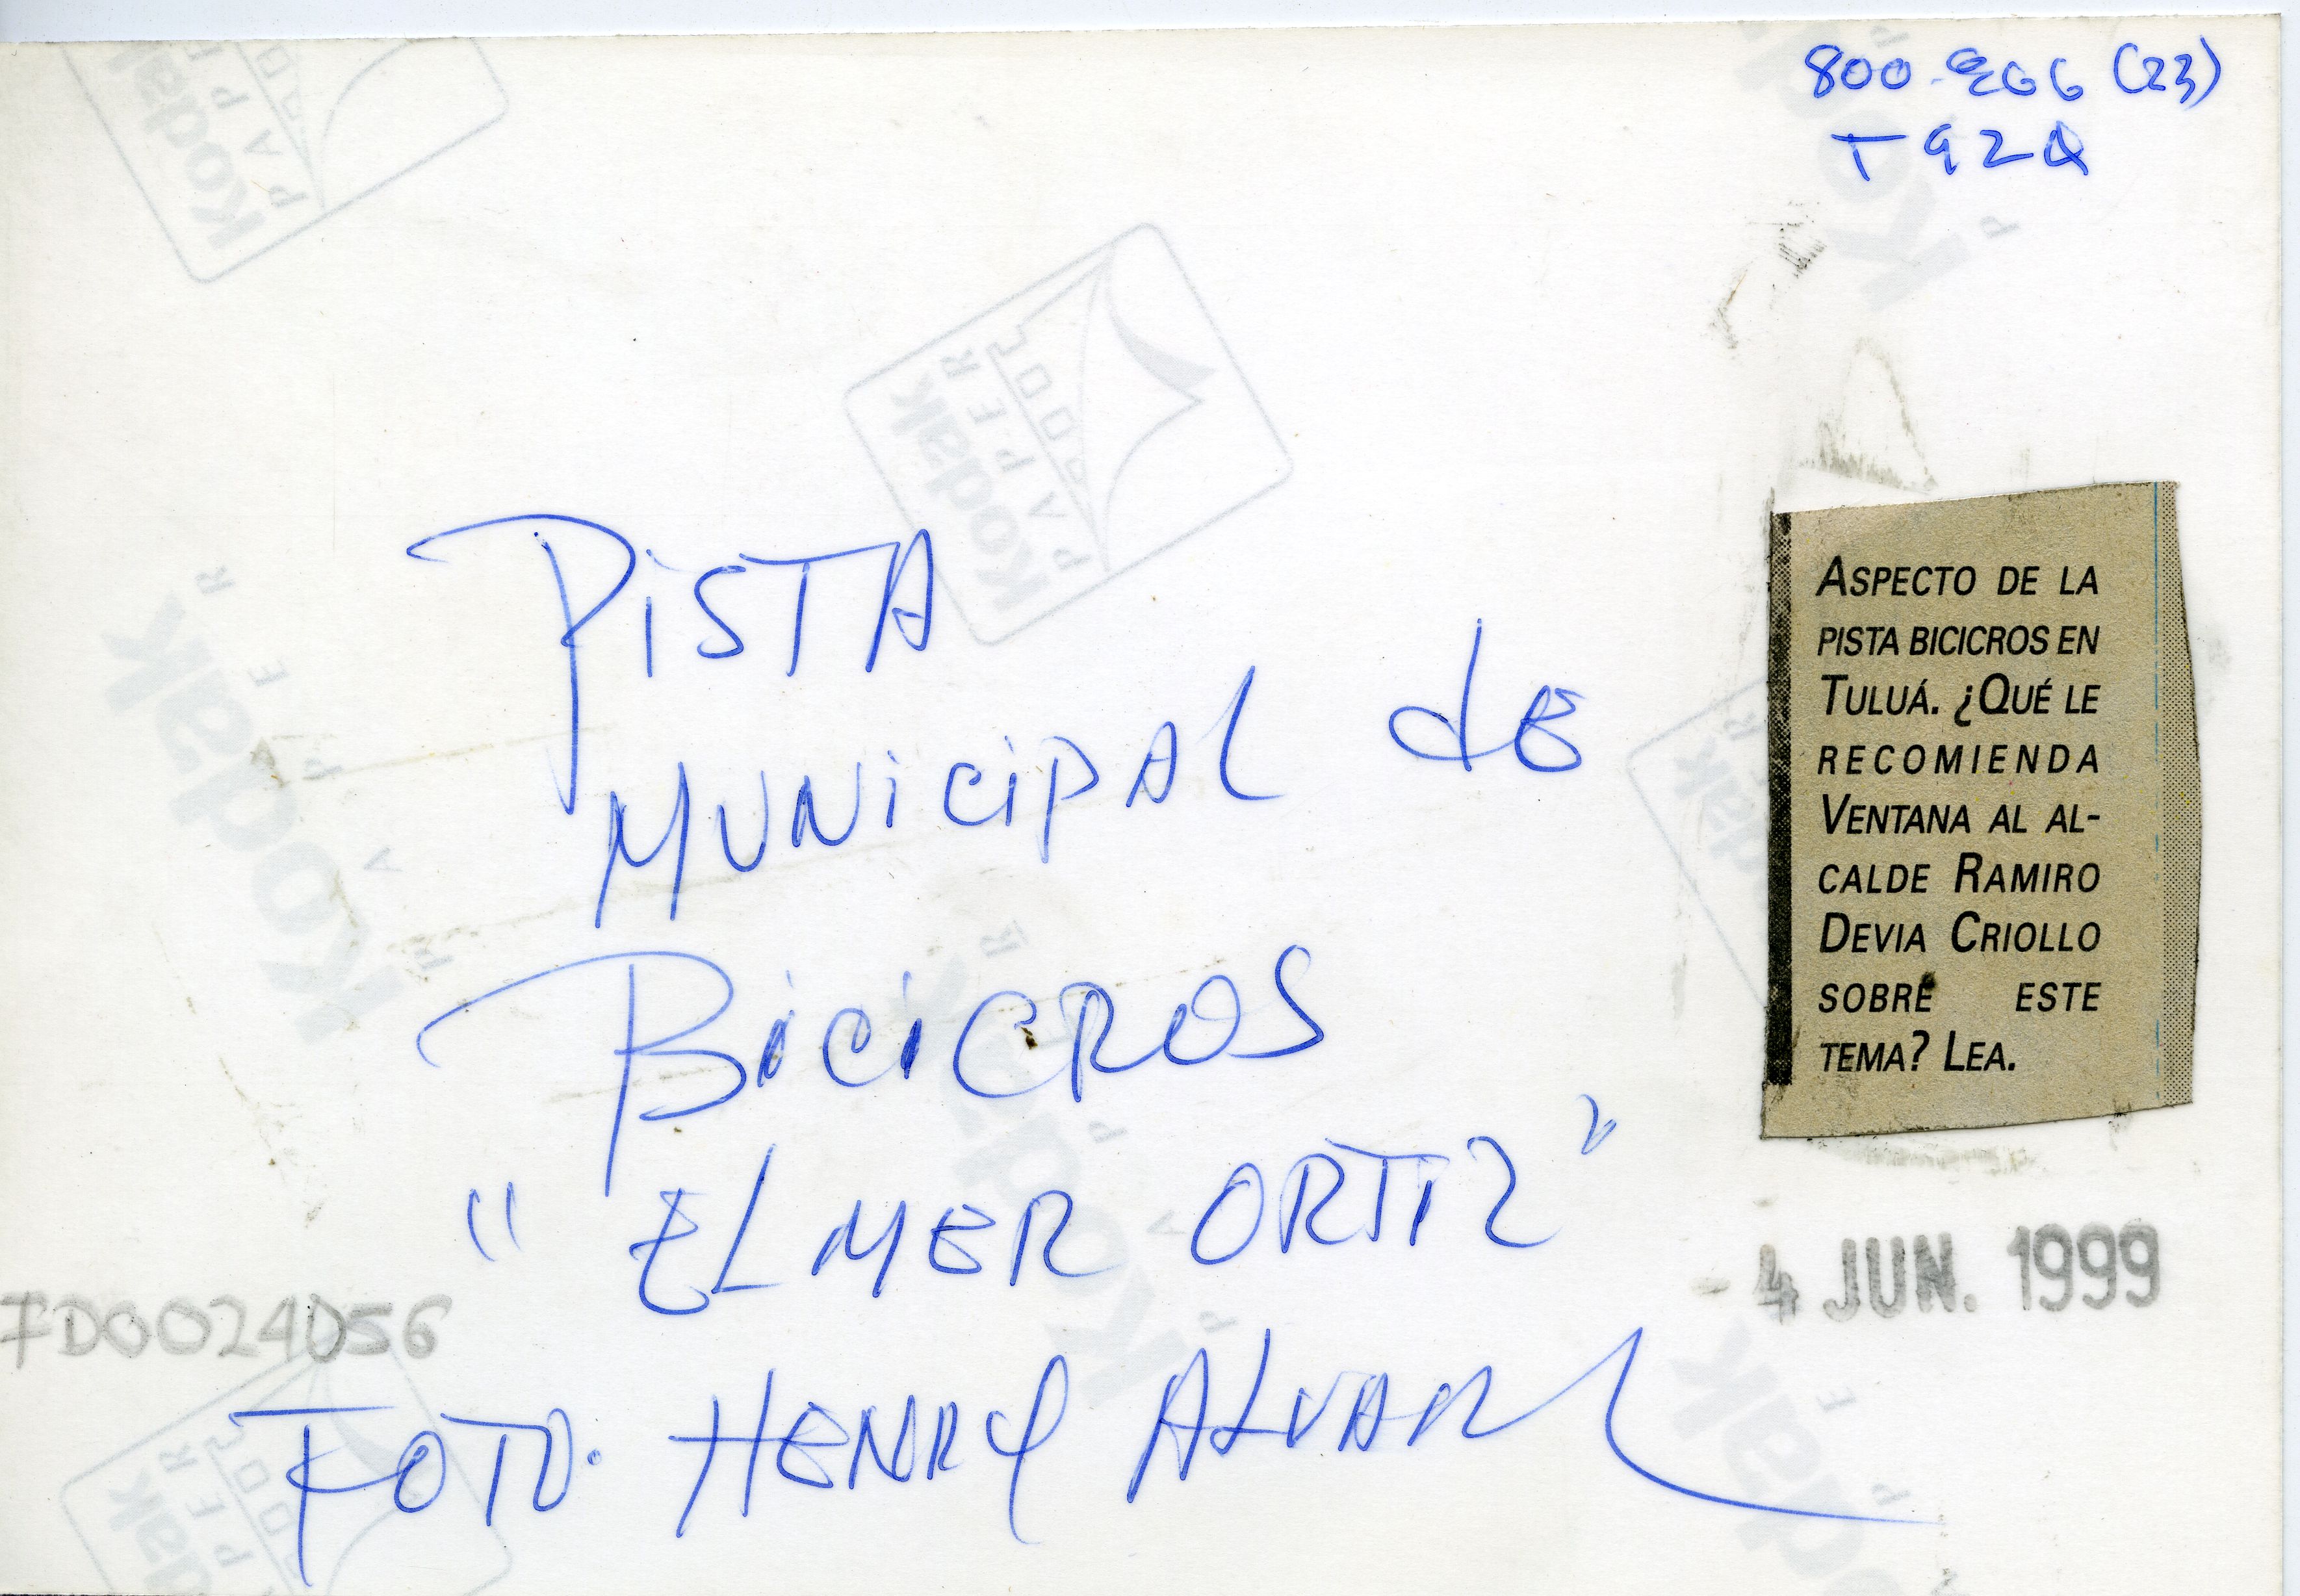 800-966 (23)
T92Q
PISTA
MUNICIPAL de
BICICROS
"ELMER ORTIZ"
FOTO. HENRY ALVAR
FD0024056
ASPECTO DE LA
PISTA BICICROS EN
TULUÁ. ¿QUÉ LE
RECOMIENDA
VENTANA AL AL-
CALDE RAMIRO
DEVIA CRIOLLO
SOBRE ESTE
TEMA? LEA.
- 4 JUN. 1999
Kodak
PAPER